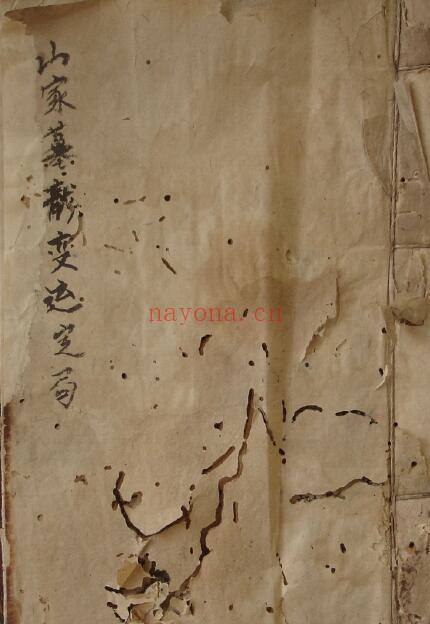 山家墓龍变运定局
nayona.cn